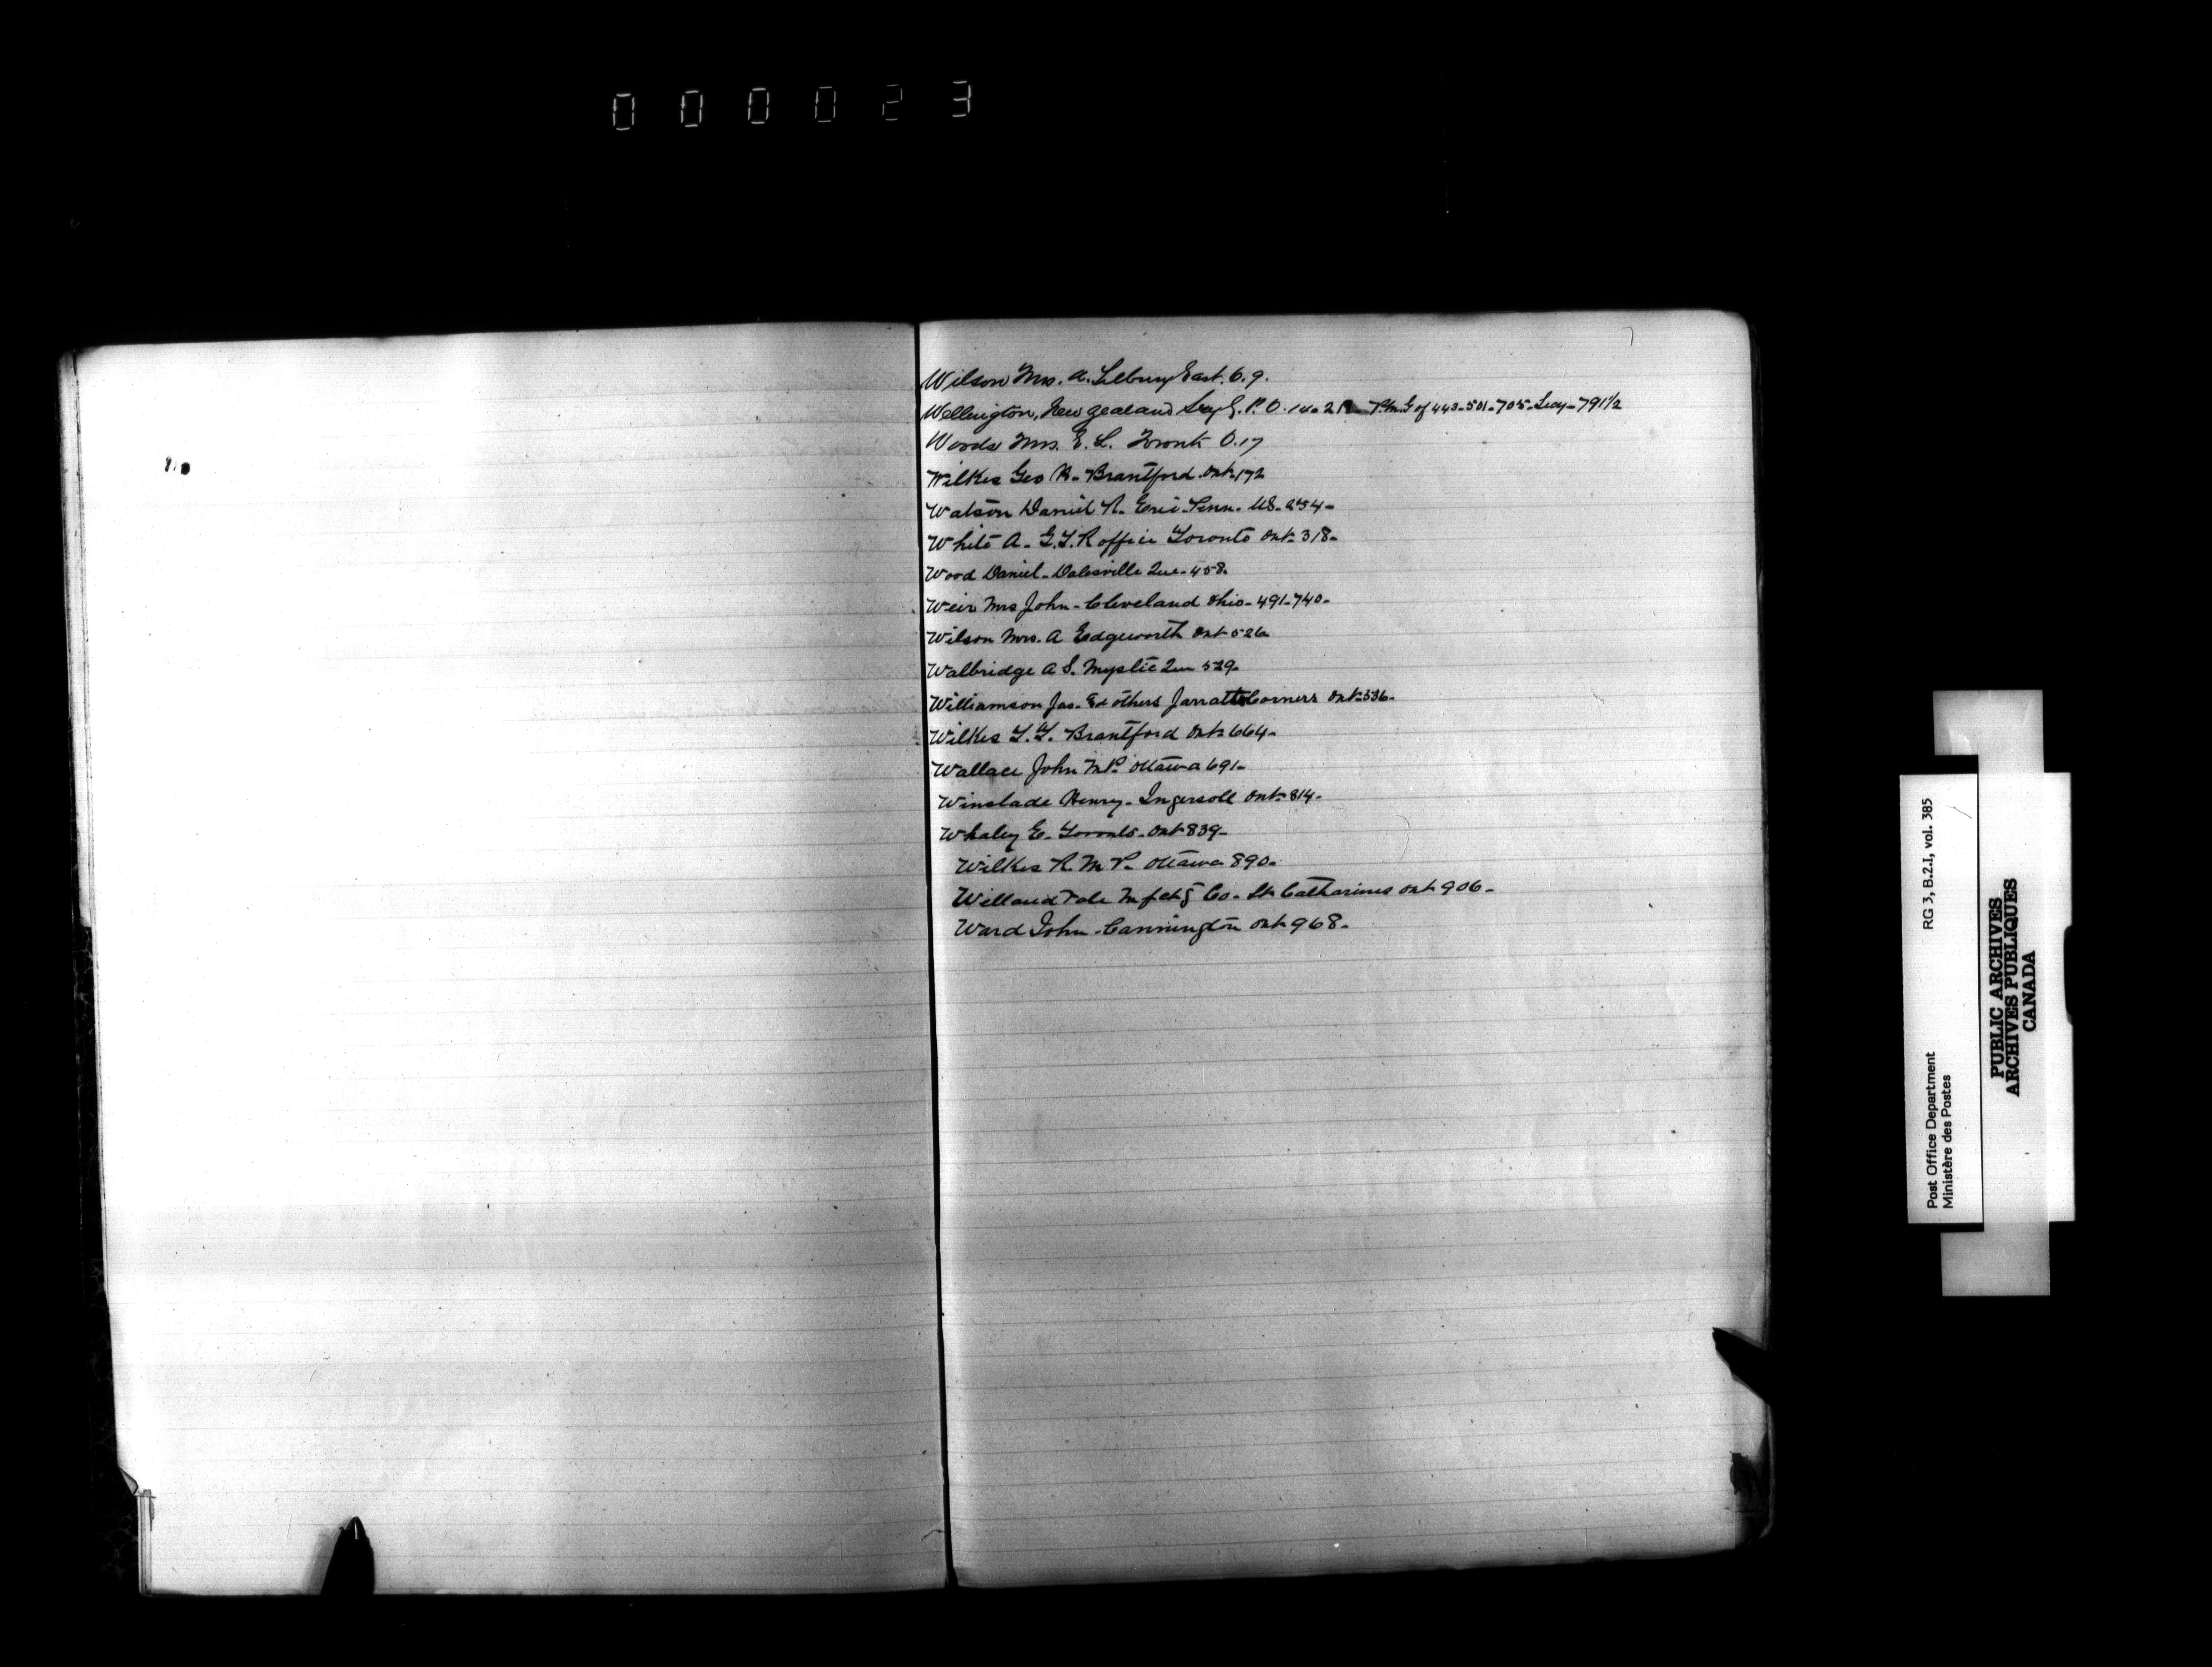 000023
Wilson Mrs. A. Tilbury East. O. 9.
Wellington, New Zealand Secy G. P. O. 14-21 P.M.G of 443-501-705-Secy-791½
Woods Mrs. E. L. Toronto O. 17
Wilkes Geo H- Brantford Ont-172
Watson Daniel R. Erie-Penn- US-254-
White A- G.T.R office Toronto Ont-318-
Wood Daniel-Dalesville Que-458-
Weir Mrs John-Cleveland Ohio-491-740-
Wilson Mrs. A Edgeworth Ont-526-
Walbridge A S. Mystic Que 529-
Williamson Jas. & others Jarratts Corners Ont-536-
Wilkes Brantford Ont-664-
Wallace John MP. Ottawa 691-
Winslade Henry-Ingersoll Ont-814-
Whaley E- Toronto-Ont-839-
Wilkes R. M P- Ottawa 890-
Welland Vale Mfctg Co- St Catharines Ont-906-
Ward John-Cannington Ont-968-
Post Office Department RG 3, B.2.I, vol. 385
Ministère des Postes
PUBLIC ARCHIVES
ARCHIVES PUBLIQUES
CANADA